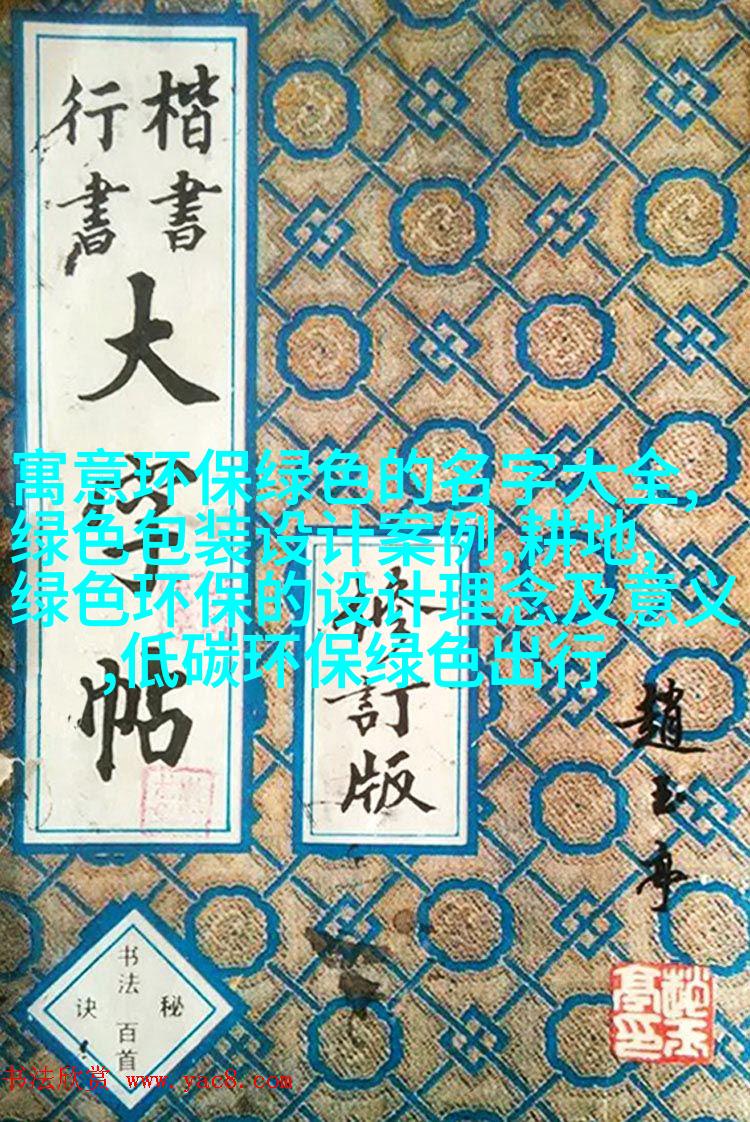 楷書
行書
大字帖
寓意环保绿色的名字大全,
绿色包装设计案例,耕地,
绿色环保的设计理念及意义
,低碳环保绿色出行
修訂版
趙玉亭
书法百首
秘诀
书法欣赏 www.yac8.com